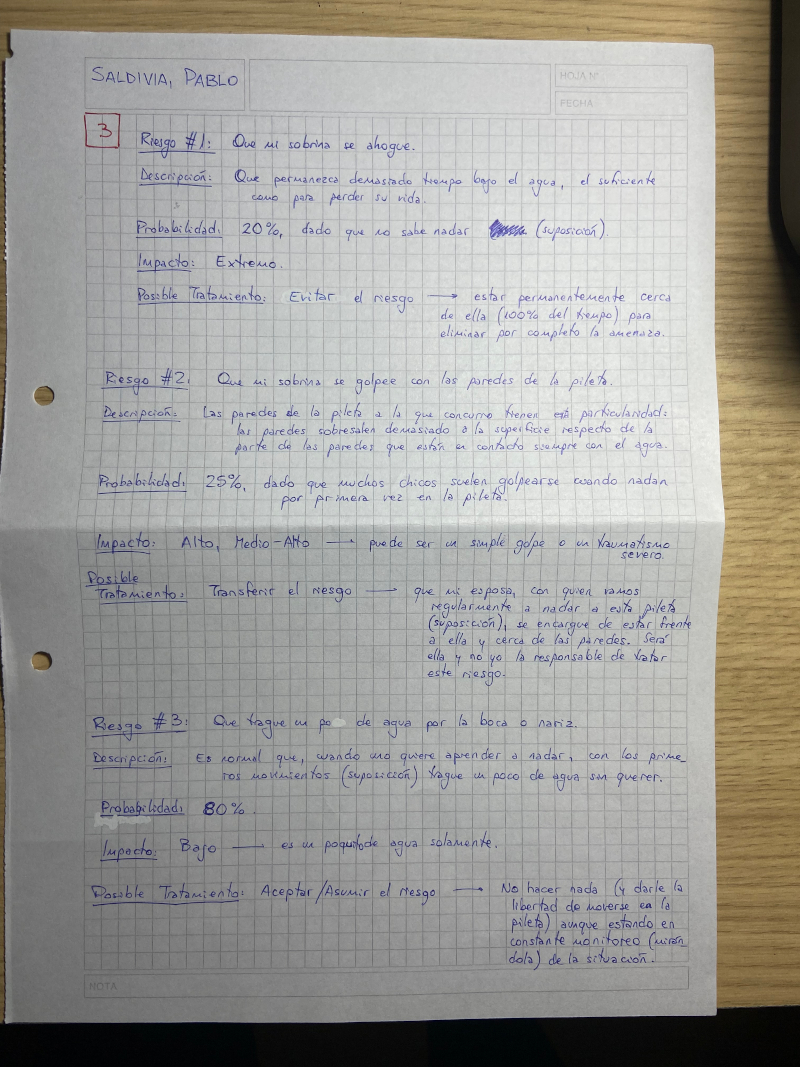 SALDIVIA, PABLO
HOJA Nº
FECHA
3
Riesgo #1: Que mi sobrina se ahogue.
Descripción: Que permanezca demasiado tiempo bajo el agua, el suficiente
como para perder su vida.
Probabilidad: 20%, dado que no sabe nadar (suposición).
Impacto: Extremo.
Posible Tratamiento: Evitar el riesgo → estar permanentemente cerca
de ella (100% del tiempo) para
eliminar por completo la amenaza.
Riesgo #2: Que mi sobrina se golpee con las paredes de la pileta.
Descripción: Las paredes de la pileta a la que concurro tienen esta particularidad:
las paredes sobresalen demasiado a la superficie respecto de la
parte de las paredes que están en contacto siempre con el agua.
Probabilidad: 25%, dado que muchos chicos suelen golpearse cuando nadan
por primera vez en la pileta.
Impacto: Alto, Medio-Alto → puede ser un simple golpe o un traumatismo
severo.
Posible
Tratamiento: Transferir el riesgo → que mi esposa, con quien vamos
regularmente a nadar a esta pileta
(suposición), se encargue de estar frente
a ella y cerca de las paredes. Será
ella y no yo la responsable de tratar
este riesgo.
Riesgo #3: Que trague un po de agua por la boca o nariz.
Descripción: Es normal que, cuando uno quiere aprender a nadar, con los prime-
ros movimientos (suposición) trague un poco de agua sin querer.
Probabilidad: 80%.
Impacto: Bajo → es un poquito de agua solamente.
Posible Tratamiento: Aceptar/Asumir el riesgo → No hacer nada (y darle la
libertad de moverse en la
pileta) aunque estando en
constante monitoreo (mirán
dola) de la situación.
NOTA